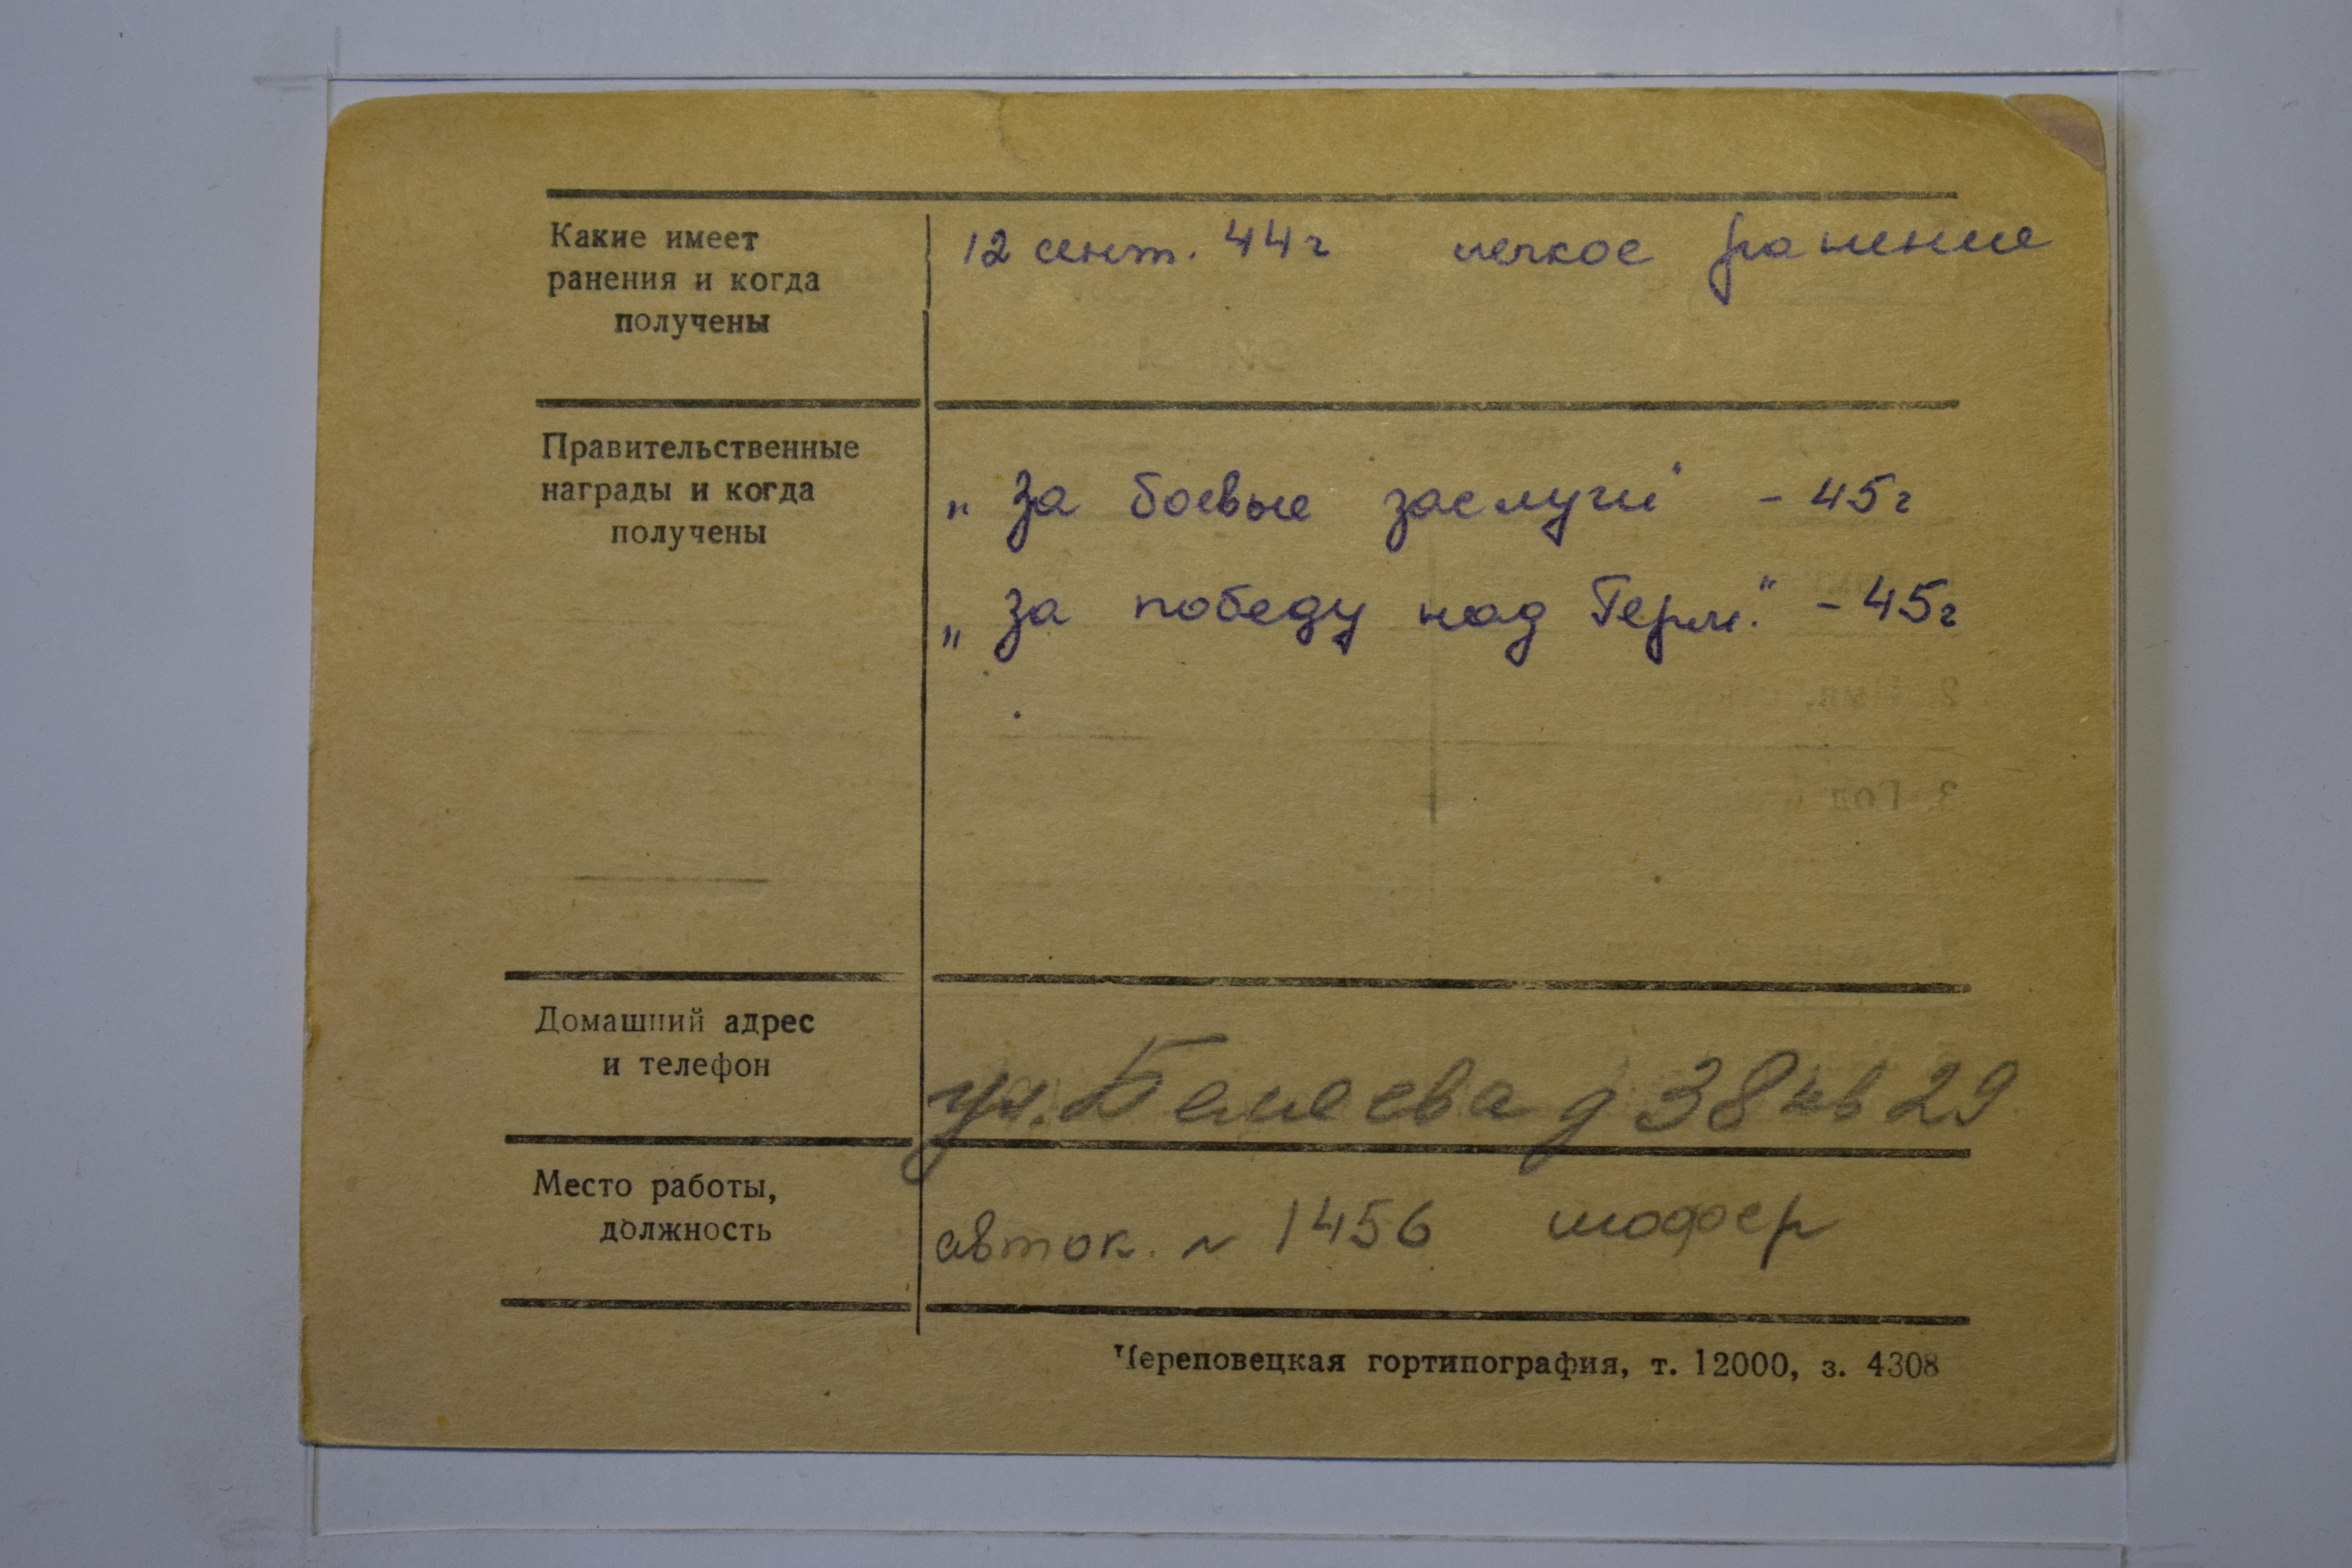 Какие имеет
ранения и когда
получены
12 сент. 44г легкое ранение
Правительственные
награды и когда
получены
„ За боевые заслуги" - 45г
„ За победу над Герм." - 45г
Домашний адрес
и телефон
ул. Беляева д 38 кв 29
Место работы,
должность
авток. N 1456 шофер
Череповецкая гортипография, т. 12000, з. 4308